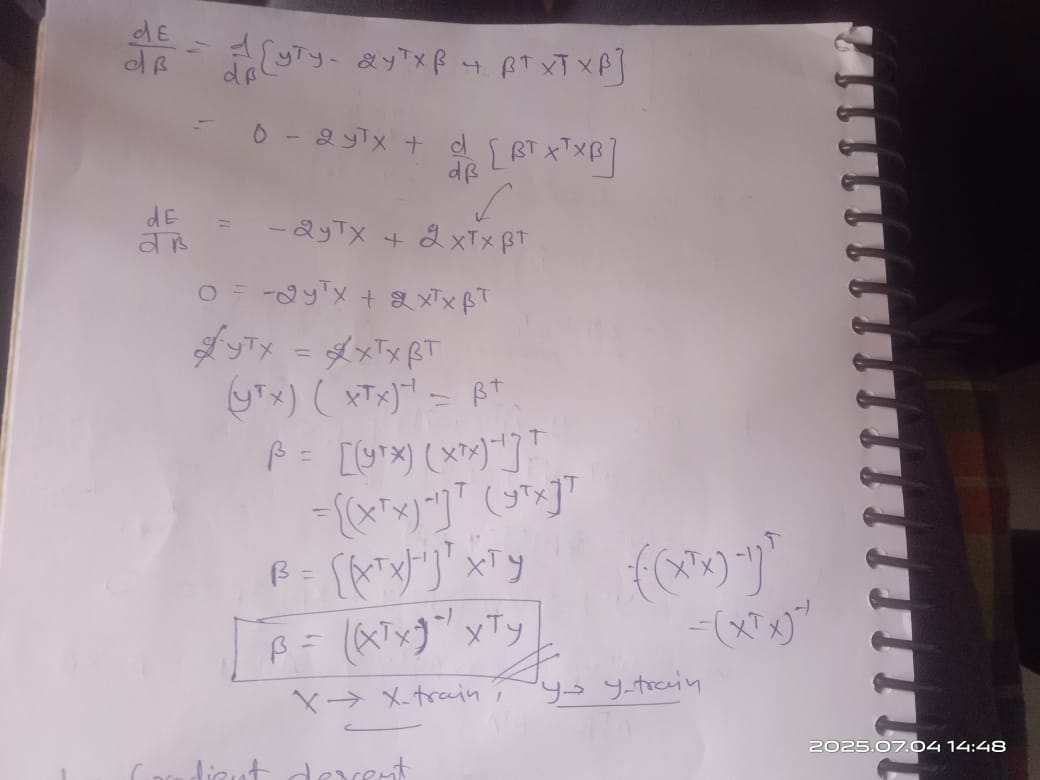 dE/dβ = d/dβ [yᵀy - 2yᵀXβ + βᵀXᵀXβ]
= 0 - 2yᵀX + d/dβ [βᵀXᵀXβ]
dE/dβ = -2yᵀX + 2XᵀXβᵀ
0 = -2yᵀX + 2XᵀXβᵀ
2yᵀX = 2XᵀXβᵀ
(yᵀX) (XᵀX)⁻¹ = βᵀ
β = [(yᵀX) (XᵀX)⁻¹]ᵀ
= {(XᵀX)⁻¹}ᵀ (yᵀX]ᵀ
β = {(XᵀX)⁻¹]ᵀ Xᵀy
{(XᵀX)⁻¹}ᵀ
= (XᵀX)⁻¹
β = (XᵀX)⁻¹ Xᵀy
X → X_train, y → y_train
Gradient descent
2025.07.04 14:48